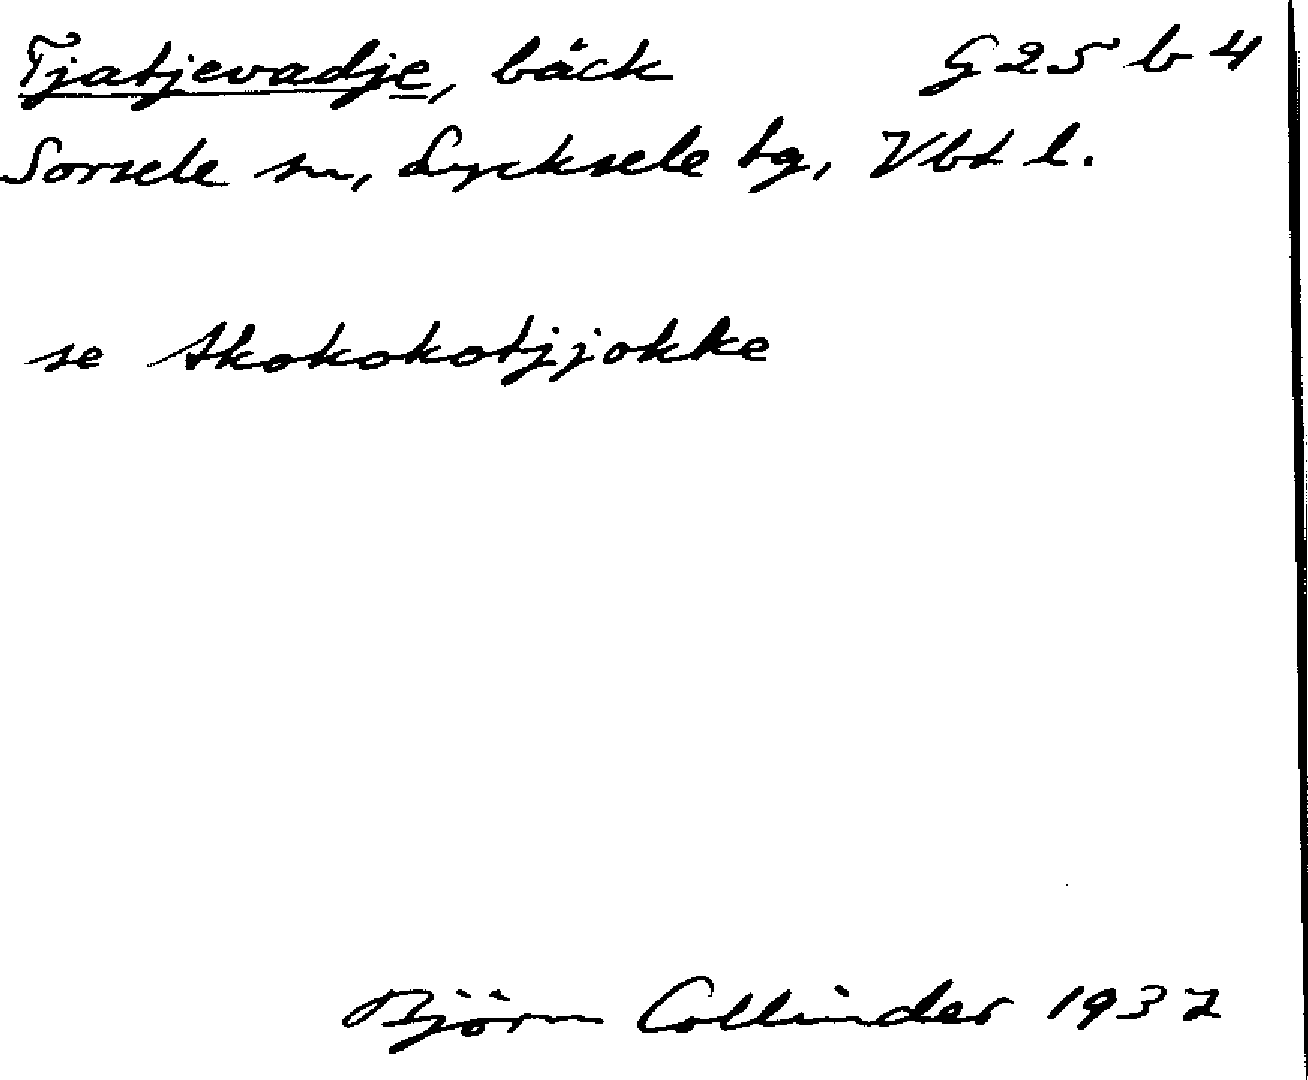 Tjatjevadje, bäck G25 b 4
Sorsele sn, Lycksele tg, Vbt l.
se Akokokotjjokke
Björn Collinder 1937